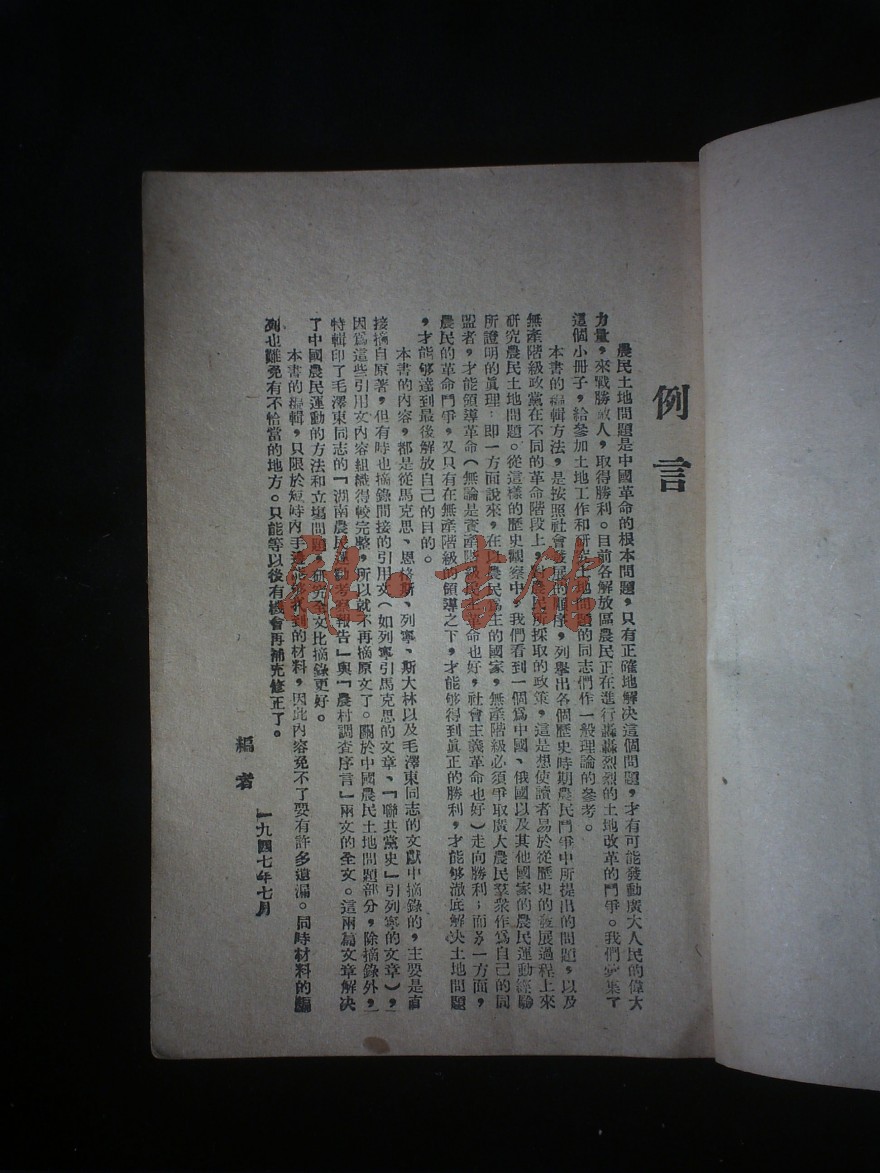 例言
農民土地問題是中國革命的根本問題，只有正確地解决這個問題，才有可能發動廣大人民的偉大
力量，來戰勝敵人，取得勝利。目前各解放區農民正在進行轟轟烈烈的土地改革的鬥爭。我們彙集了
這個小冊子，給參加土地工作和研究土地問題的同志們作一般理論的參考。
本書的編輯方法，是按照社會發展的順序，列舉出各個歷史時期農民鬥爭中所提出的問題，以及
無產階級政黨在不同的革命階段上，對農民所採取的政策，這是想使讀者易於從歷史的發展過程上來
研究農民土地問題。從這樣的歷史觀察中，我們看到一個爲中國、俄國以及其他國家的農民運動經驗
所證明的眞理：即一方面說來，在以農民爲主的國家，無產階級必須爭取廣大農民羣衆作爲自己的同
盟者，才能領導革命（無論是資產階級民主革命也好，社會主義革命也好）走向勝利；而另一方面，
農民的革命鬥爭，又只有在無產階級的領導之下，才能够得到眞正的勝利，才能够澈底解决土地問題
，才能够達到最後解放自己的目的。
本書的內容，都是從馬克思、恩格斯、列寧、斯大林以及毛澤東同志的文獻中摘錄的，主要是直
接摘自原著，但有時也摘錄間接的引用文（如列寧引馬克思的文章、「聯共黨史」引列寧的文章），
因爲這些引用文內容組織得較完整，所以就不再摘原文了。關於中國農民土地問題部分，除摘錄外，
特輯印了毛澤東同志的「湖南農民運動考察報告」與「農村調查序言」兩文的全文。這兩篇文章解决
了中國農民運動的方法和立場問題，研究全文比摘錄更好。
本書的編輯，只限於短時內手邊能够找到的材料，因此內容免不了要有許多遺漏。同時材料的編
列也難免有不恰當的地方。只能等以後有機會再補充修正了。
編者
一九四七年七月
書館